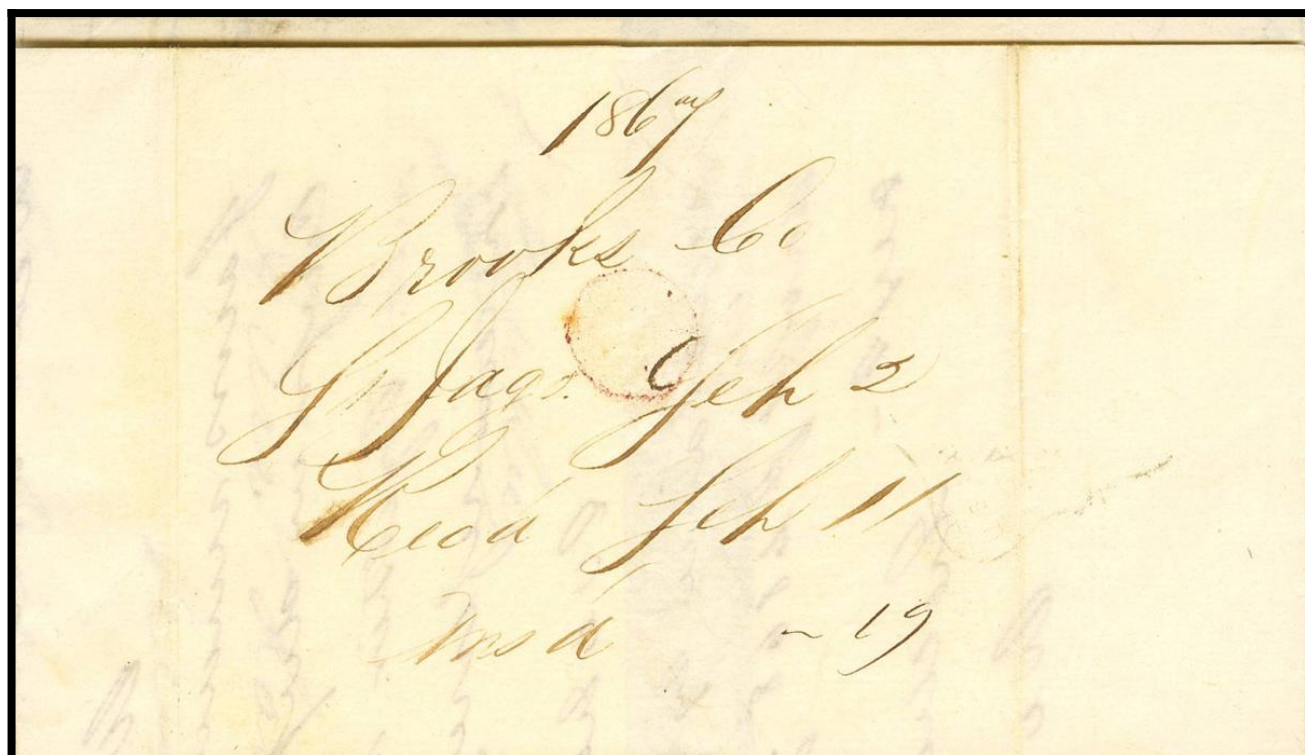 1867
Brooks Co
St Jago. Feb 2
Recd Feb 11
Ansd ~ 19